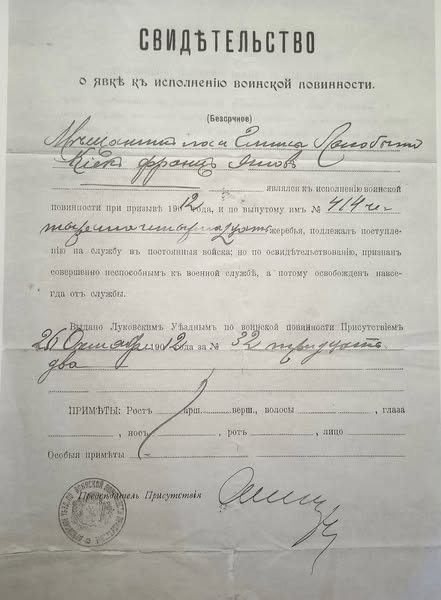 СВИДѢТЕЛЬСТВО
О ЯВКѢ КЪ ИСПОЛНЕНІЮ ВОИНСКОЙ ПОВИННОСТИ.
(Безсрочное)
Мѣщанинъ
Францъ
явился къ исполненію воинской
повинности при призывѣ 1912 года, и по вынутому имъ № 414 че-
тыреста четырнадцать жеребья, подлежалъ поступле-
нію на службу въ постоянныя войска, но по освидѣтельствованію, признанъ
совершенно неспособнымъ къ военной службѣ, а потому освобожденъ навсе-
гда отъ службы.
Выдано Луковскимъ Уѣзднымъ по воинской повинности Присутствіемъ
26 Октября 1912 года за № 32 тридцать
два
ПРИМѢТЫ: Ростъ арш. верш., волосы , глаза
, носъ , ротъ , лицо
Особыя примѣты
Предсѣдатель Присутствія